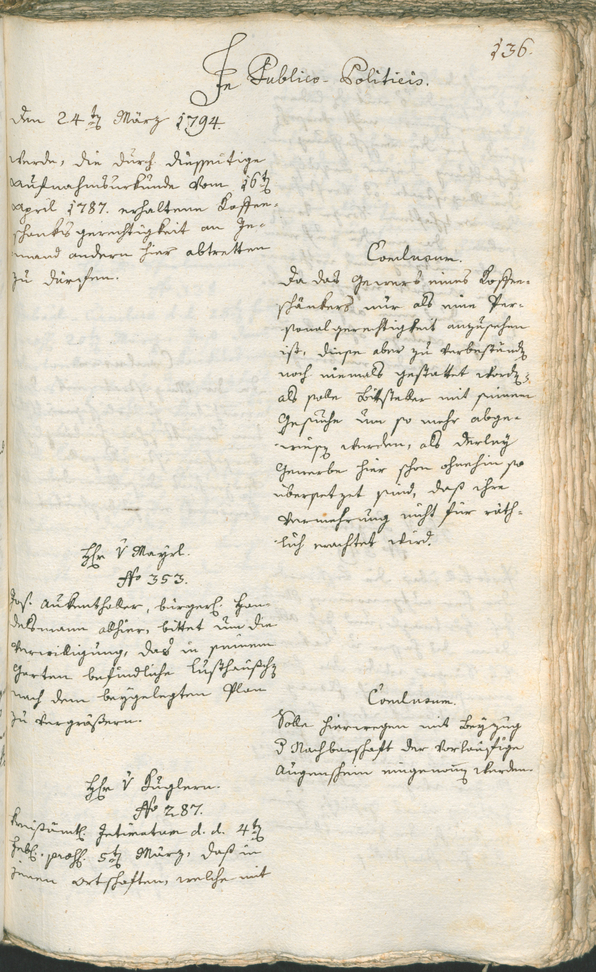 136.
In Publico-Politicis.
den 24t März 1794.
werde, die durch diesseitige
Aufnahmsurkunde vom 16t
April 1787. erhaltene Koffee-
schanksgerechtigkeit an Je-
mand andern hier abtretten
zu dürfen.
Conclusum.
Da das Gewerb eines Koffee-
schänkers nur als eine Per-
sonalgerechtigkeit anzusehen
ist, diese aber zu verbeständ
noch niemals gestattet worden:
als solle Bittsteller mit seinem
Gesuche um so mehr abge-
wiesen werden, als derley
Gewerbe hier schon ohnehin so
übersetzet sind, daß ihre
Vermehrung nicht für räth-
lich erachtet wird.
Hr v Mayrl.
No 353.
Jos. Aukenthaler, bürgerl. Han-
delsmann allhier, bittet um die
Verwilligung, das in seinem
Garten befindliche Lusthäuschen
nach dem beygelegten Plan
zu vergrößern.
Conclusum.
Solle hierwegen mit Beyzug
d Nachbarschaft der vorläufige
Augenschein eingenommen werden.
Hr v Kuglern.
No 287.
Kreisämtl. Intimatum d. d. 4t
et 5t März, daß in
jenen Ortschaften, welche mit